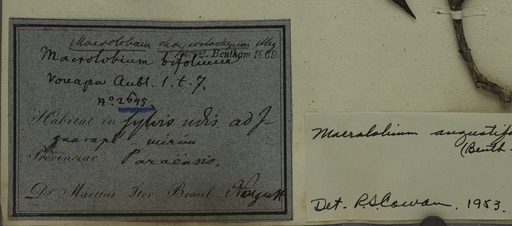 Macrolobium
Herb. Benth. 1860.
Macrolobium bifolium
Vouapa Aubl. 1. t. 7.
No. 2645
Habitat in sylvis udis ad J-
guarapé mirim
Provinciae Paraënsis.
Dr. Martius Iter Brasil. August
Macrolobium angustifo
(Benth.
Det. R.S. Cowan. 1953.